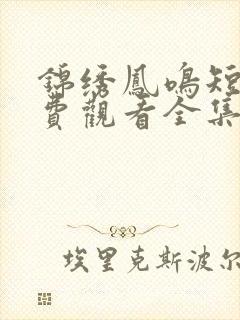 錦绣鳳鳴短
費觀看全集
埃里克斯波尔